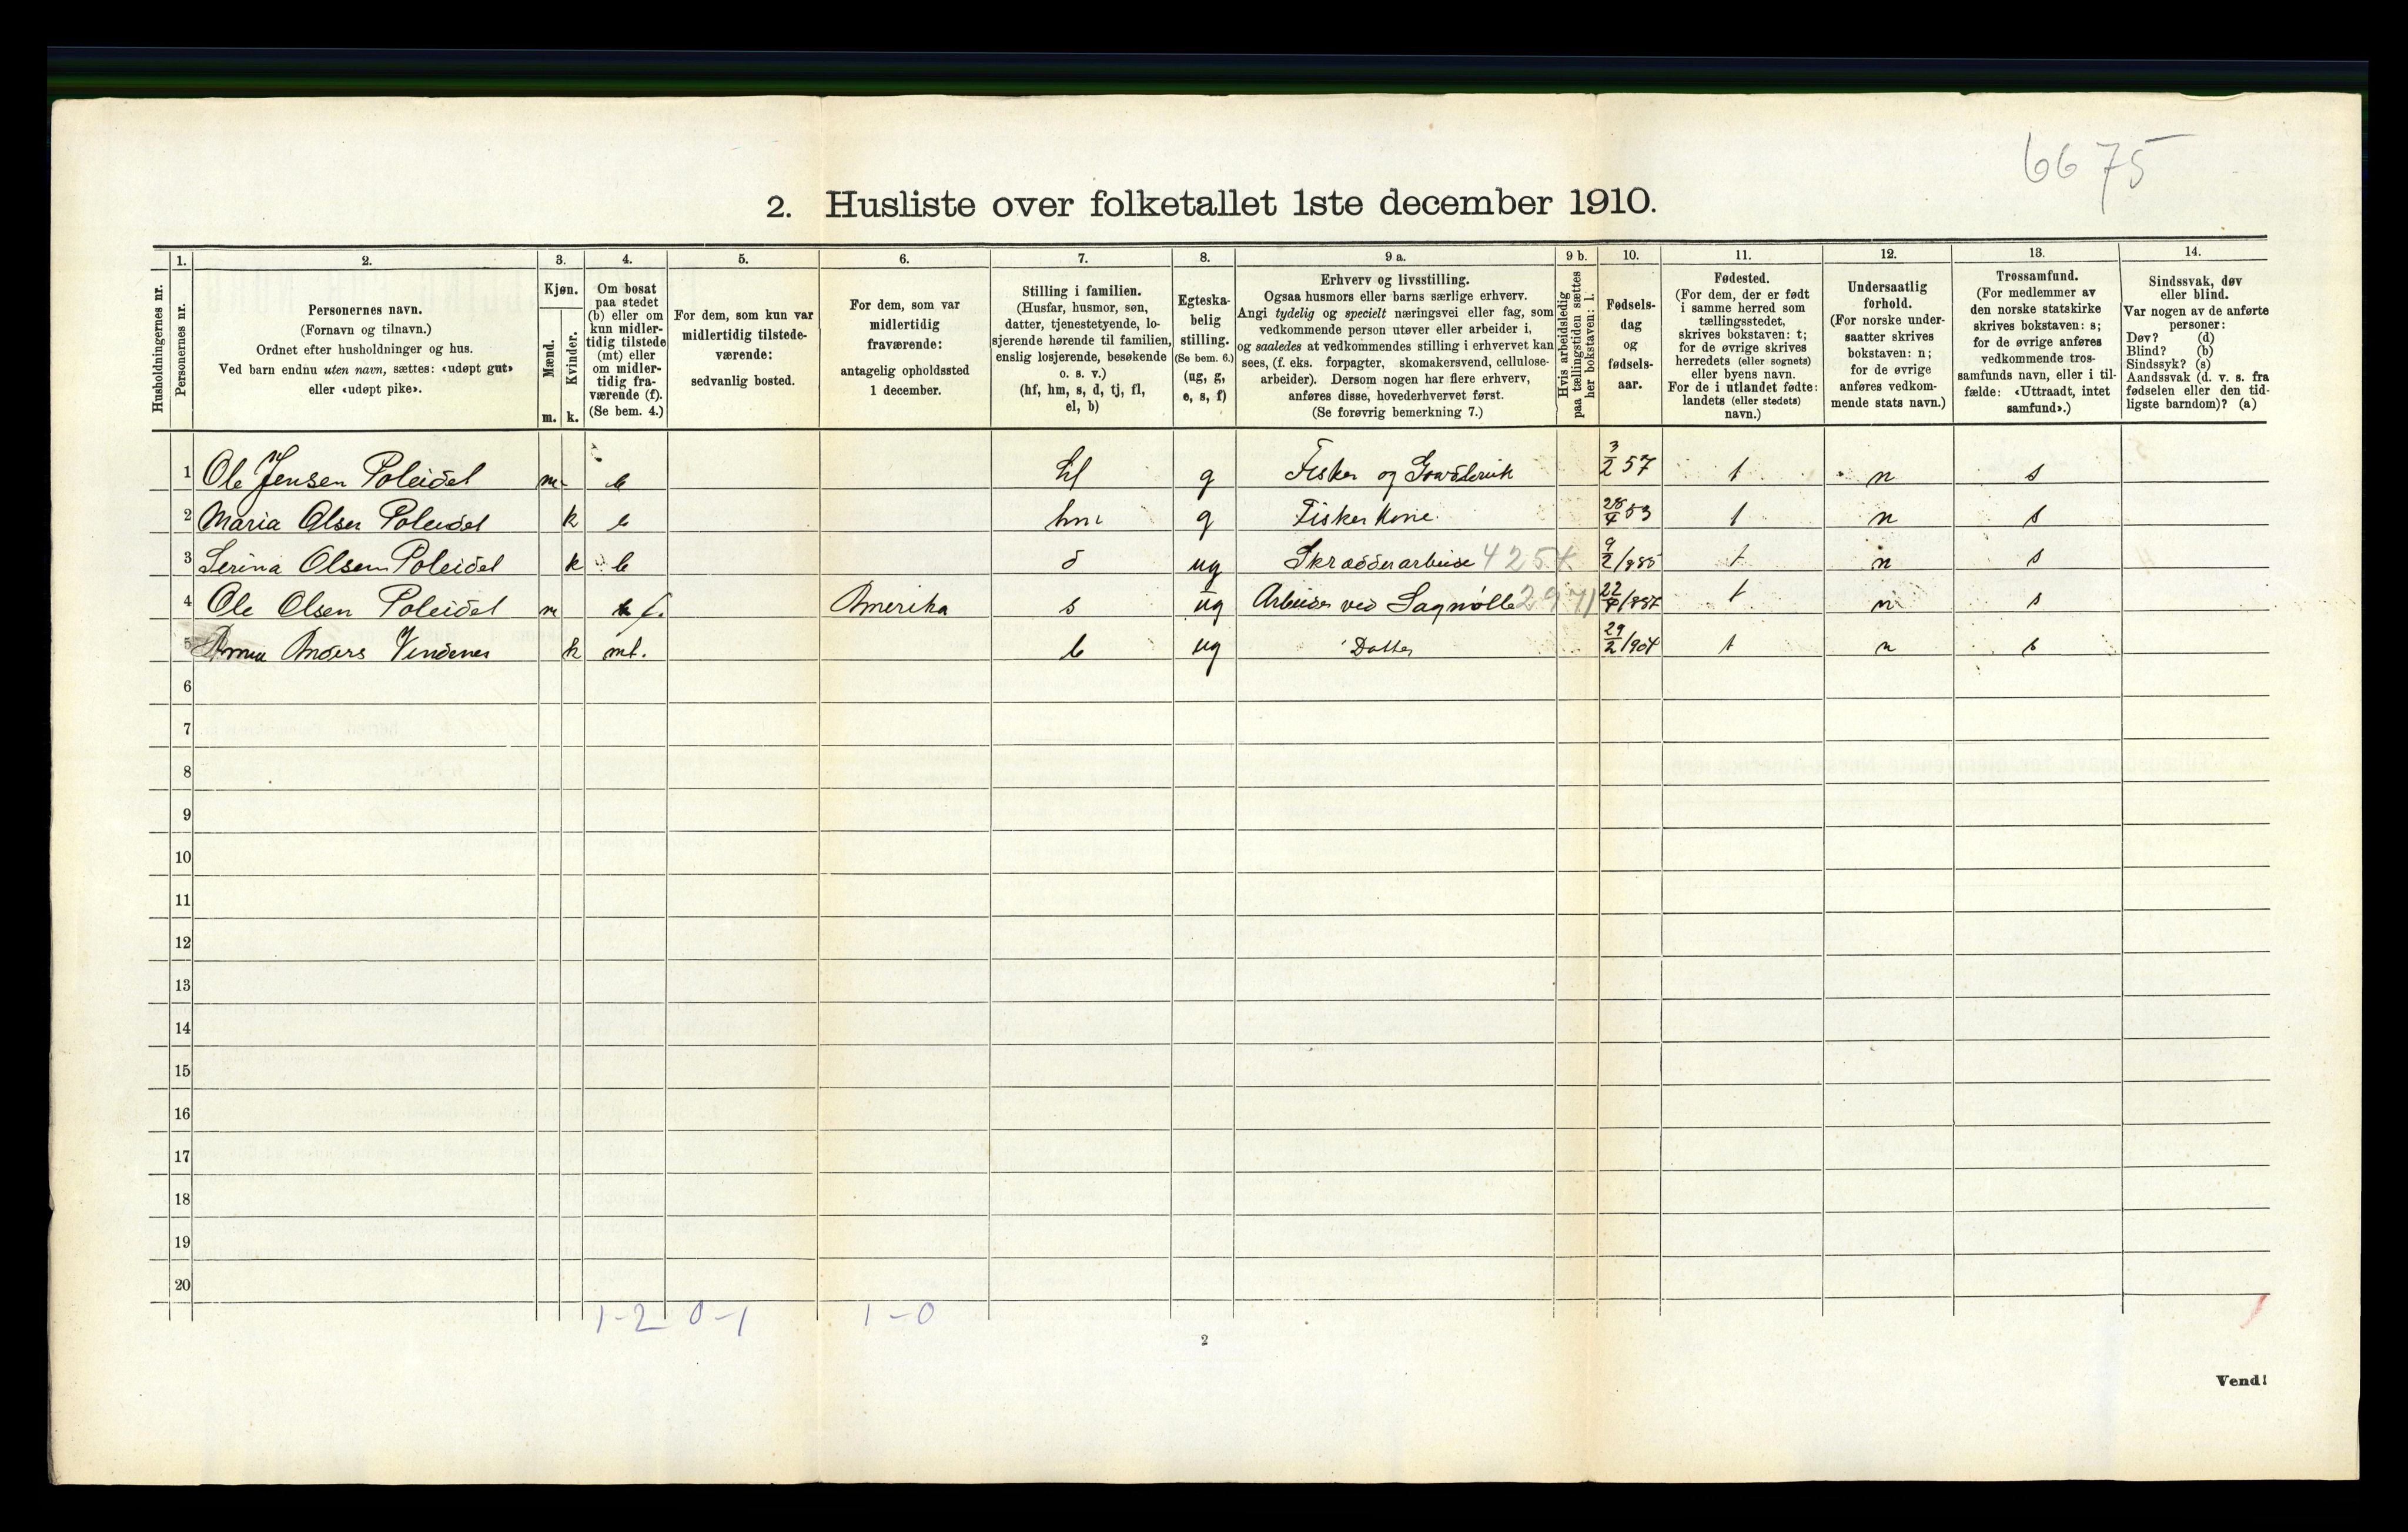 6675
2. Husliste over folketallet 1ste december 1910.
Husholdningernes nr.
1.
Personernes nr.
2.
Personernes navn.
(Fornavn og tilnavn.)
Ordnet efter husholdninger og hus.
Ved barn endnu uten navn, sættes: «udøpt gut»
eller «udøpt pike».
3.
Kjøn.
Mænd.
Kvinder.
m. k.
4.
Om bosat
paa stedet
(b) eller om
kun midler-
tidig tilstede
(mt) eller
om midler-
tidig fra-
værende (f).
(Se bem. 4.)
5.
For dem, som kun var
midlertidig tilstede-
værende:
sedvanlig bosted.
6.
For dem, som var
midlertidig
fraværende:
antagelig opholdssted
1 december.
7.
Stilling i familien.
(Husfar, husmor, søn,
datter, tjenestetyende, lo-
sjerende hørende til familien,
enslig losjerende, besøkende
o. s. v.)
(hf, hm, s, d, tj, fl,
el, b)
8.
Egteska-
belig
stilling.
(Se bem. 6.)
(ug, g,
e, s, f)
9 a.
Erhverv og livsstilling.
Ogsaa husmors eller barns særlige erhverv.
Angi tydelig og specielt næringsvei eller fag, som
vedkommende person utøver eller arbeider i,
og saaledes at vedkommendes stilling i erhvervet kan
sees, (f. eks. forpagter, skomakersvend, cellulose-
arbeider). Dersom nogen har flere erhverv,
anføres disse, hovederhvervet først.
(Se forøvrig bemerkning 7.)
9 b.
Hvis arbeidsledig
paa tællingstiden sættes
her bokstaven: l.
10.
Fødsels-
dag
og
fødsels-
aar.
11.
Fødested.
(For dem, der er født
i samme herred som
tællingsstedet,
skrives bokstaven: t;
for de øvrige skrives
herredets (eller sognets)
eller byens navn.
For de i utlandet fødte:
landets (eller stedets)
navn.)
12.
Undersaatlig
forhold.
(For norske under-
saatter skrives
bokstaven: n;
for de øvrige
anføres vedkom-
mende stats navn.)
13.
Trossamfund.
(For medlemmer av
den norske statskirke
skrives bokstaven: s;
for de øvrige anføres
vedkommende tros-
samfunds navn, eller i til-
fælde: «Uttraadt, intet
samfund».)
14.
Sindssvak, døv
eller blind.
Var nogen av de anførte
personer:
Døv? (d)
Blind? (b)
Sindssyk? (s)
Aandssvak (d. v. s. fra
fødselen eller den tid-
ligste barndom)? (a)
1 Ole Jensen Poleidet m b hf g Fisker og 3/2 57 t n s
2 Maria Olsen Poleidet k b hm g Fisker Kone 28/4 53 t n s
3 Serina Olsen Poleidet k b d ug Skrædderarbeide 4254 9/2/885 t n s
4 Ole Olsen Poleidet m f. Amerika s ug Arbeider ved Sagmølle 2971 t n s
5 Anders Vindenes k mt. b ug Datter 29/2/904 t n s
6
7
8
9
10
11
12
13
14
15
16
17
18
19
20
1-2 0-1 1-0
2
Vend!